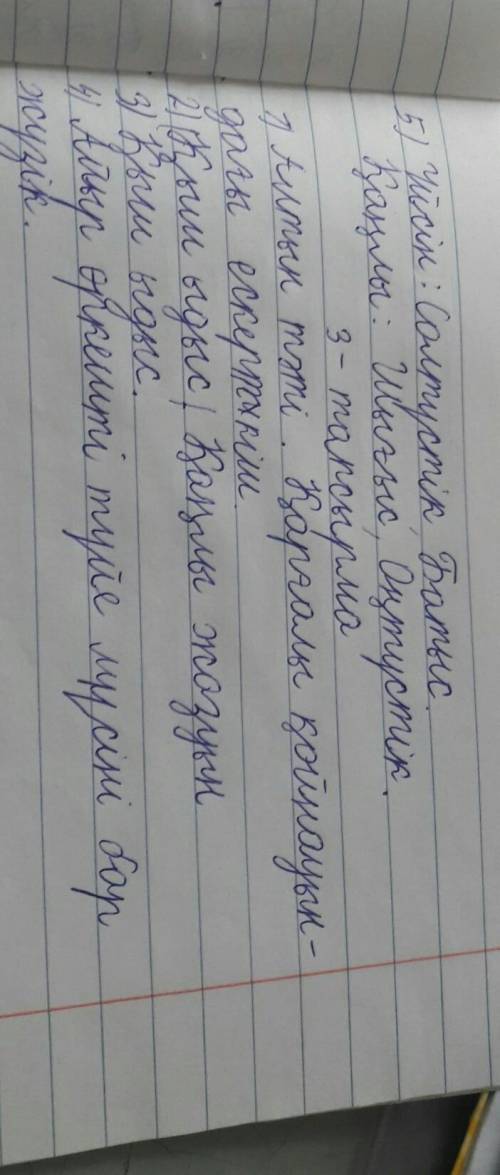 5) Үйсін: Солтүстік, Батыс.
Қаңлы: Шығыс, Оңтүстік.
3-тапсырма
1) Алтын тәті. Қарғалы қойнауын-
дағы ескерткіш.
2) Қыш ыдыс / Қаңлы жазуын
3) Қыш ыдыс.
4) Айыр өркешті түйе мүсіні бар
жүзік.